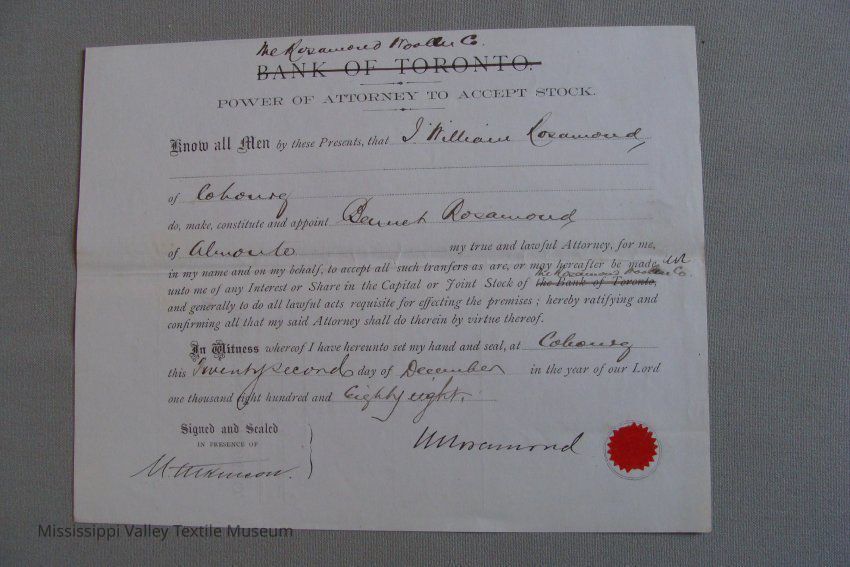 The Rosamond Woolen Co.
BANK OF TORONTO.
POWER OF ATTORNEY TO ACCEPT STOCK.
Know all Men by these Presents, that I William Rosamond,
of Cobourg
do, make, constitute and appoint Bennet Rosamond
of Almonte my true and lawful Attorney, for me,
in my name and on my behalf, to accept all such transfers as are, or may hereafter be made,
The Rosamond Woolen Co.
unto me of any Interest or Share in the Capital or Joint Stock of the Bank of Toronto,
and generally to do all lawful acts requisite for effecting the premises; hereby ratifying and
confirming all that my said Attorney shall do therein by virtue thereof.
In Witness whereof I have hereunto set my hand and seal, at Cobourg
this Twenty second day of December in the year of our Lord
one thousand eight hundred and Eighty eight.
Signed and Sealed
IN PRESENCE OF
WRosamond
Mississippi Valley Textile Museum